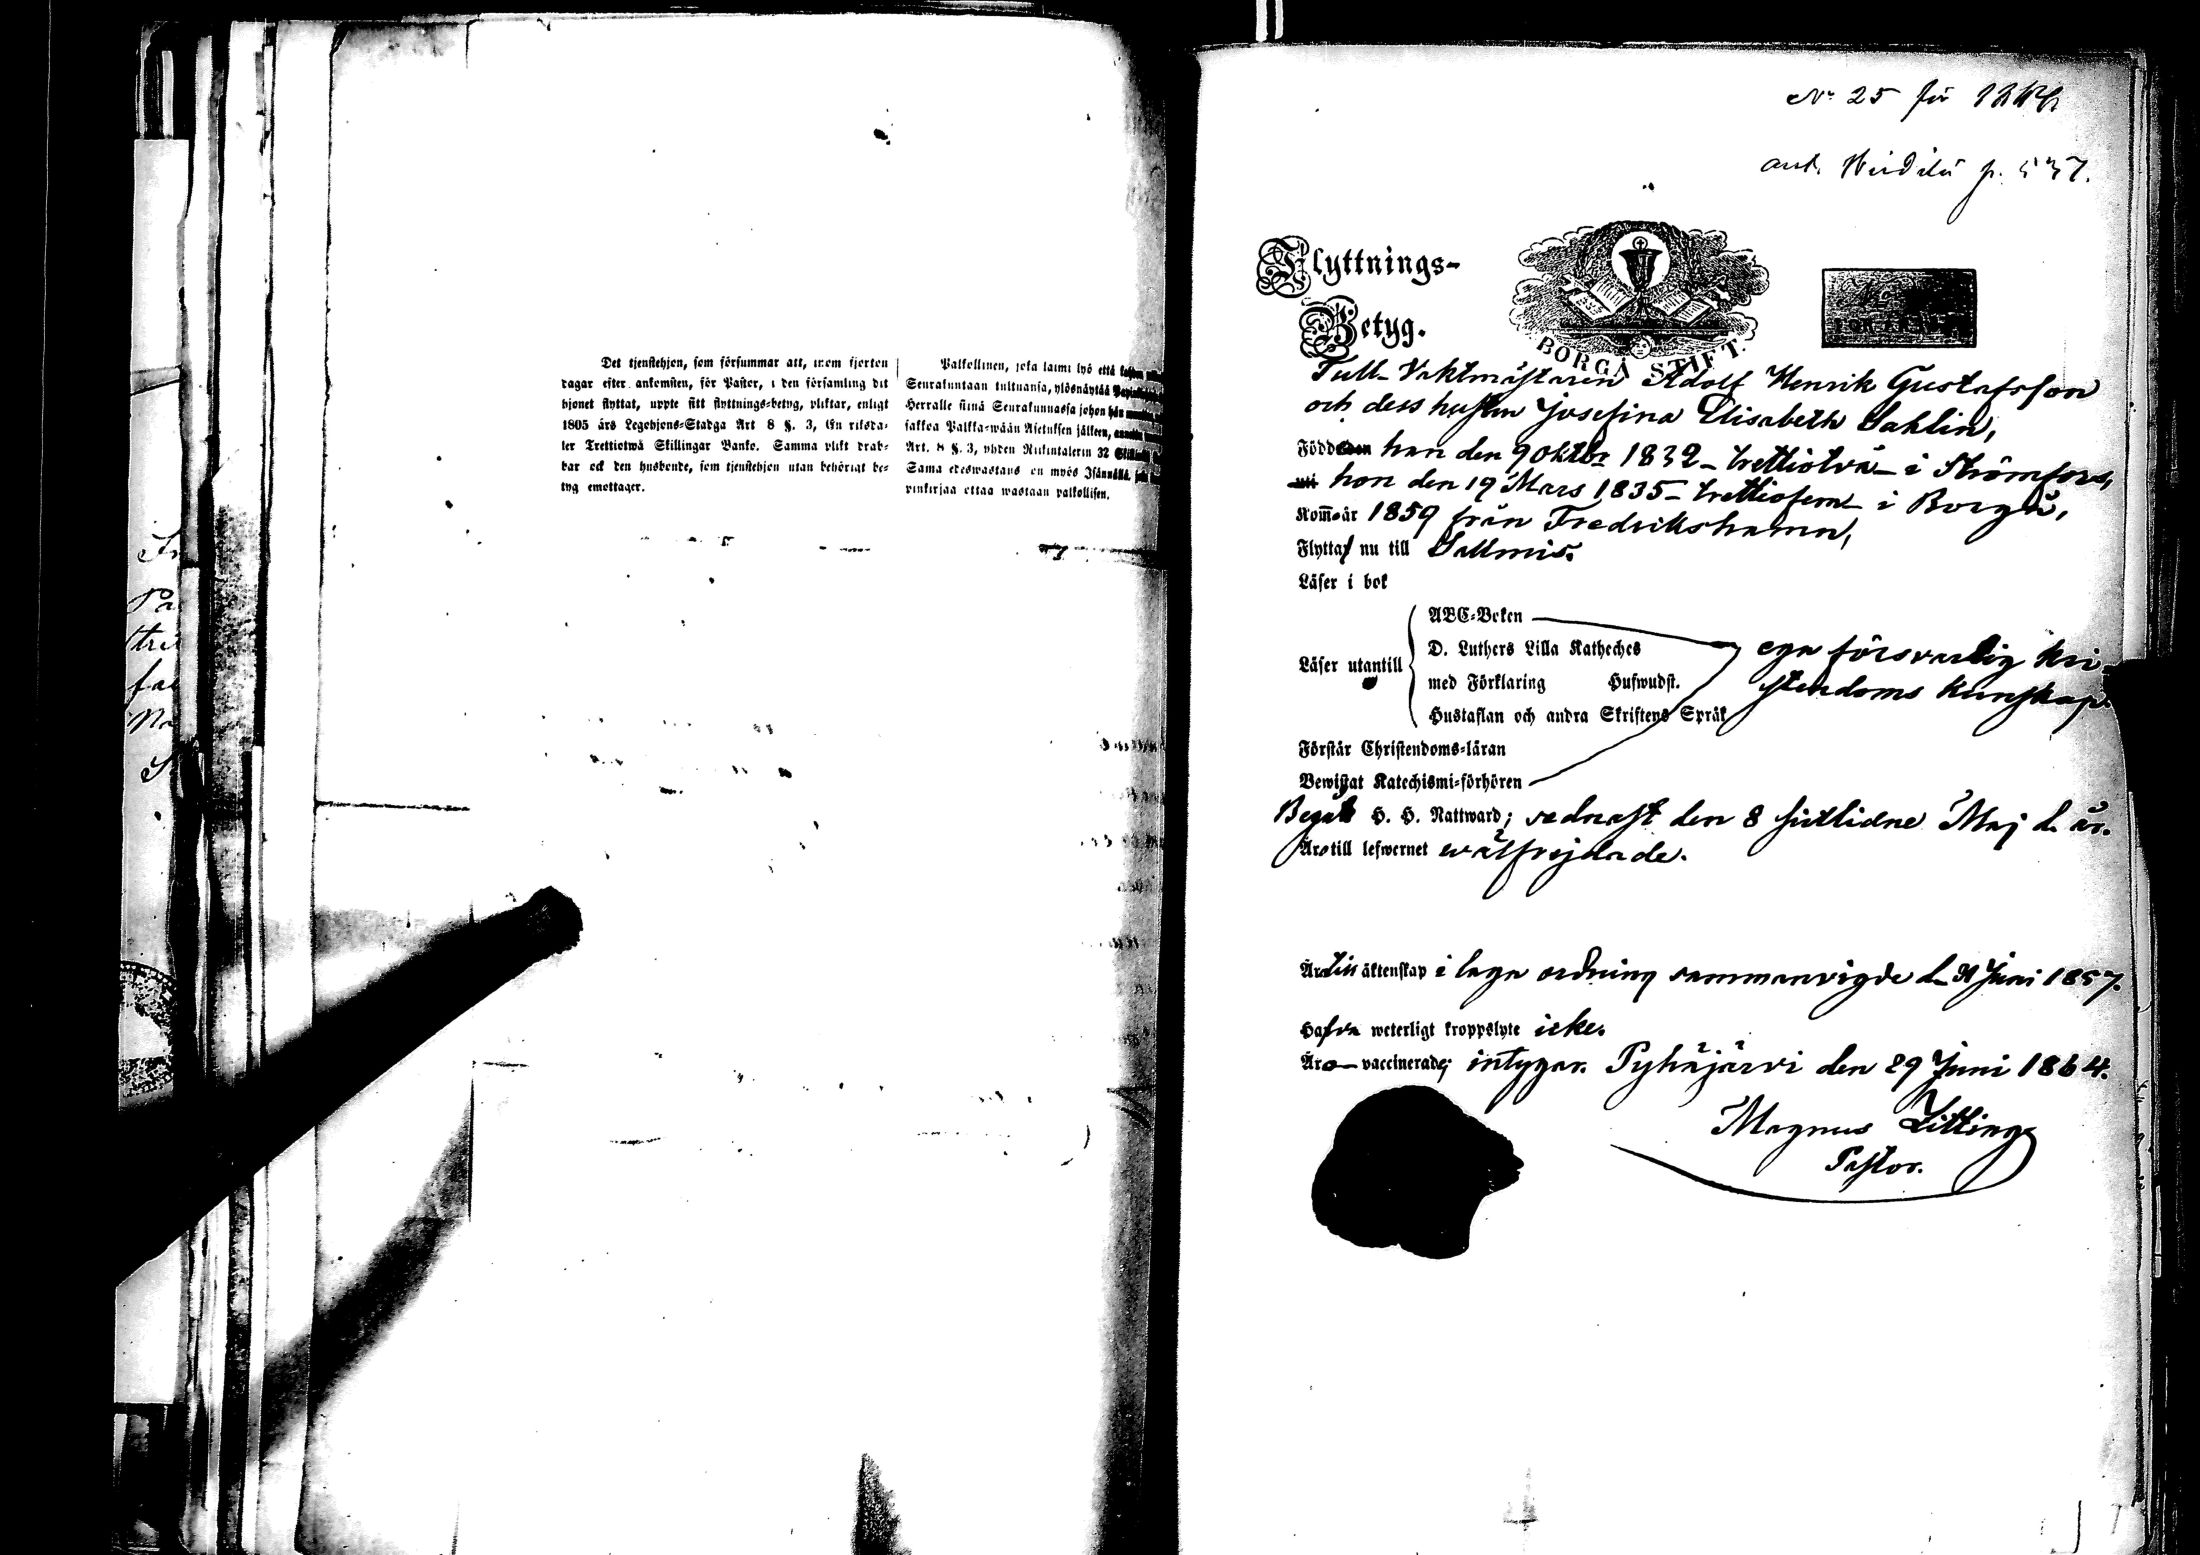 Det tjenstehjon, som försummar att, inom fjorton
dagar efter ankomsten, för Pastor, i den församling dit
hjonet flyttat, uppte sitt flyttnings-betyg, pliktar, enligt
1805 års Legohjons-Stadga Art 8 §. 3, En riksda-
ler Trettiotwå Skillingar Banko. Samma plikt drab-
bar ock den husbonde, som tjenstehjon utan behörigt be-
tyg emottager.
Palkollinen, joka laimi lyö että
Seurakuntaan tultuansa, ylösnäyttää
Herralle siinä Seurakunnassa johon hän
sakkoa Palkka-wään Asetuksen jälkeen,
Art. 8 §. 3, yhden Riikintalerin 32
Sama edeswastaus on myös Isännällä,
pinkirjaa ottaa wastaan palkollisen.
No 25 för
p. 537.
Flyttnings-
Betyg.
BORGÅ STIFT.
Tull-Vaktmästaren Adolf Henrik Gustafsson
och dess hustru Josefina Elisabeth Sahlin,
Född han den 9 Oktbr 1832 - trettiotvå - i Strömfors,
hon den 19 Mars 1835 - trettiofem - i Borgå,
Kom̄ år 1859 från Fredrikshamn,
Flytta nu till Salmis.
Läser i bok
ABC-Boken
Läser utantill
D. Luthers Lilla Katheches
med Förklaring Hufwudst.
Hustaflan och andra Skriftens Språk
ega försvarlig kri-
stendoms kunskap.
Förstår Christendoms-läran
Bewistat Katechismi-förhören
Begått H. H. Nattward; sednast den 8 sistlidne Maj d. år.
Äro till lefwernet wälfrejdade.
Äro till äktenskap i laga ordning sammanvigde d. Juni 1857.
Hafva weterligt kroppslyte icke.
Äro vaccinerade; intygar. Pyhäjärvi den 29 Juni 1864.
Magnus Litting
Pastor.